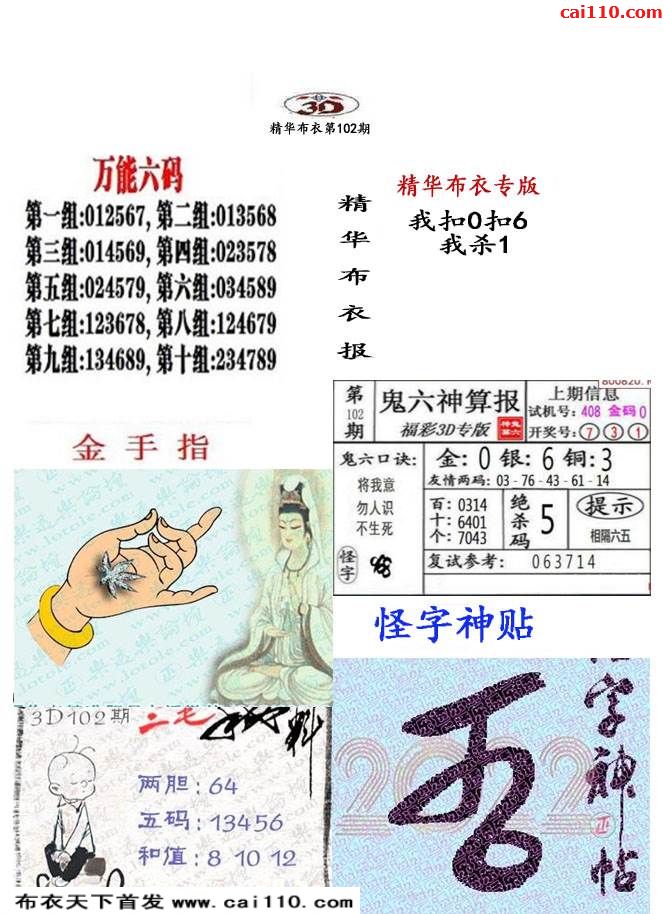 cai110.com
3D
精华布衣第102期
万能六码
第一组:012567,第二组:013568
第三组:014569,第四组:023578
第五组:024579,第六组:034589
第七组:123678,第八组:124679
第九组:134689,第十组:234789
精华布衣报
精华布衣专版
我扣0扣6
我杀1
金手指
第102期
鬼六神算报
福彩3D专版
上期信息
试机号: 408 金码0
开奖号: 7 3 1
鬼六口诀:
将我意
勿人识
不生死
怪字
金: 0 银: 6 铜: 3
友情两码: 03-76-43-61-14
百: 0314
十: 6401
个: 7043
绝杀码 5
提示
相隔六五
复试参考: 063714
怪字神贴
3D102期
三毛
料
两胆: 64
五码: 13456
和值: 8 10 12
2022
怪字神帖
布衣天下首发 www.cai110.com